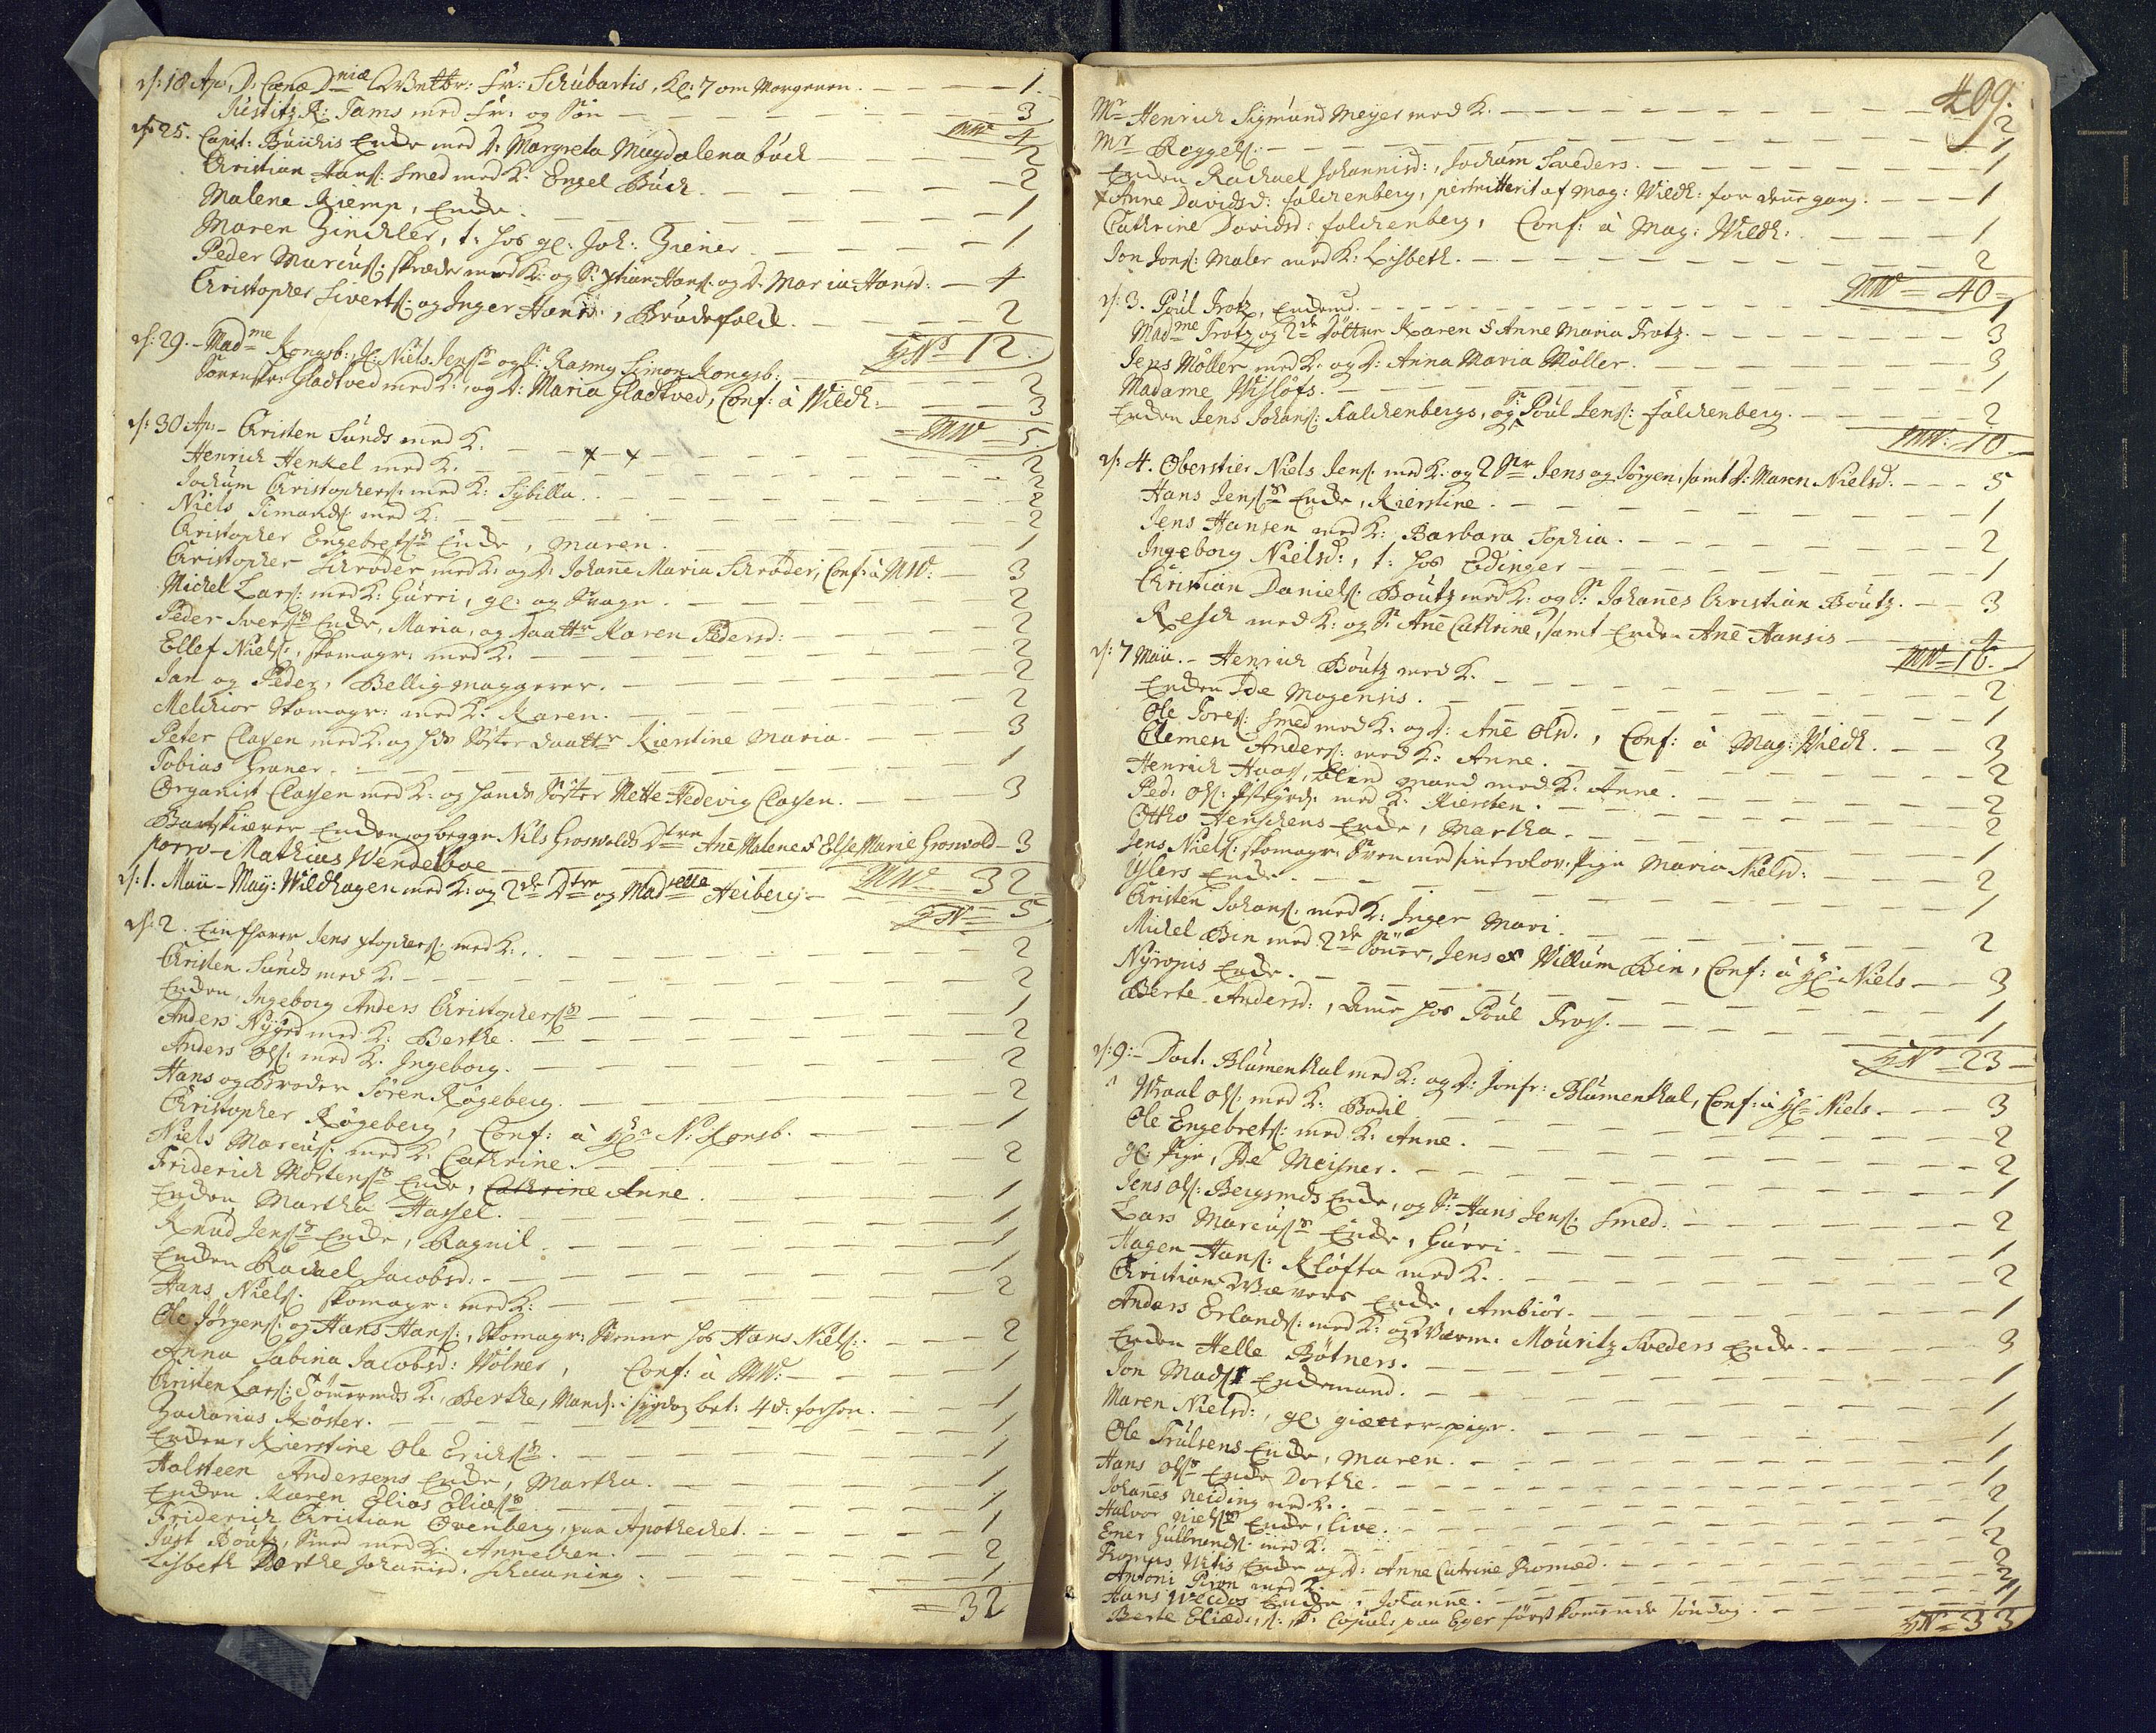 d: 18 Ap: D: Cænæ Dniæ Fr: Schubartis, Kl: 7 om Morgenen. 1.
Justitz R: Tams med Fr: og Søn 3
MW 4
d: 25. Capit: Buuchis Encke med D: Margreta Magdalena buch 2
Christian Hans: Smed med K: Engel Buch. 2
Malene Kiemp, Encke. 1
Maren Zinchler, t: hos gl: Joh: Ziener 1
Peder Marcus: skræder med K: og S: xstian Hans: og D: Maria Hansd: 4
Christopher Siverts: og Inger Hansd:, Brudefolck. 2
12
d: 29. Madme Kongsb:, H: Niels Jens og Sr Rasmus Simon Kongsb: 2
Sorenskr: Gladtved med K: og D: Maria Gladtved, Conf: à Wildh: 3
MW 5
d: 30 Ap: Christen Sunds med K. 2
Henrich Henkel med K. 2
Jochum Christophers: med K: Sybilla. 2
Niels Timands: med K: 2
Christopher Engebrets Encke, Maren. 1
Christopher Schrøder med K: og D: Johanne Maria Schrøder, Conf: à MW: 3
Michel Lars: med K: Gurri, gl: og svage. 2
Peder Ivers Encke, Maria, og daatter Karen Pedersd: 2
Ellef Niels:, skomagr: med K. 2
Jan og Peder, Belligmaggerer. 2
Melchior skomagr: med K: Karen. 2
Peter Classen med K: og hds søster daatter Kierstine Maria. 3
Tobias Graner. 1
Organist Classen med K: og hands Søster Mette Hedevig Classen. 3
Bartskierer Encken, og begge Nils Groswolds Dtre Ane Malene & Else Marie Groswold 3
porro Mathias Wendelboe
MW 32
d: 1. Maii Mag: Wildhagen med K: og 2de Dtre og Madselle Heiberg 5
d: 2. Jens xstophers: med K: 2
Christen Sunds med K. 2
Encken, Ingeborg Anders Christophers 1
Anders Nygrd med K: Berthe. 2
Anders Ols: med K: Ingeborg. 2
Hans og Broder Søren Røgeberg. 2
Christopher Røgeberg, Conf: à Hr N: Konsb. 1
Niels Marcus: med K: Cathrine. 2
Friderich Mortens Encke, Cathrine Anne. 1
Encken, Martha Hassel. 1
Knud Jens Encke, Ragnil. 1
Encken Rachael Jacobsd: 1
Hans Niels: skomagr: med K: 2
Ole Jørgens: og Hans Hans:, skomagr: Svenne hos Hans Niels: 2
Anna Sabina Jacobsd: Wølner, Conf: à MW: 1
Christen Lars: Tømermds K:, Berthe, Mands: i sygdom bet: 4d: forhen. 1
Zacharias Køster. 1
Encken, Kierstine Ole Erichs. 1
Holsteen Andersens Encke, Martha. 1
Encken Karen Elias Elias 1
Friderich Christian Ovenberg, paa Apothechet. 1
Just Boutz, Smed med K: Annechen. 2
Lisbeth Dorthe Johannsd: Schauning. 1
32
409.
Mr Henrich Sigmund Meyer med K. 2
Mr Roggels: 1
Encken Rachael Johannisd:, Jochum Sveders. 1
x Anne Davidsd: falchenberg, permitterit af Mag: Wildh: for denne gang. 1
Cathrine Davidsd: falchenberg, Conf: à Mag: Wildh: 1
Jon Jons: Maler med K: Lisbeth. 2
MW 40
d: 3. Poul Trotz, Enckemd. 1
Madme Trotz og 2de døttre Karen & Anne Maria Trotz. 3
Jeps Møller med K: og D: Anna Maria Møller. 3
Madame Wisløfs. 1
Encken Jens Johans: Falchenbergs, og Sr Poul Jens: Falchenberg. 2
MW 10
d: 4. Oberstier Niels Jens: med K: og 2 Snr Jens og Jørgen, samt D: Maren Nielsd: 5
Hans Jens Encke, Kierstine. 1
Jens Hansen med K: Barbara Sophia. 2
Ingeborg Nielsd:, t: hos Edinger 1
Christian Daniels: Boutz med K: og S: Johannes Christian Boutz. 3
Resch med K: og S: Ane Cathrine, samt Encken Ane Hansis 4
MW 16
d: 7 Maii. Henrich Boutz med K. 2
Encken Ide Mogensis. 1
Ole Tores: smed med K: og D: Ane Olsd:, Conf: à Mag: Wildh. 3
Clemen Anders: med K: Anne. 2
Henrich Haas, blind mand med K: Anne. 2
Ped: Ols: med K: Kiersten. 2
Ottho Henschens Encke, Martha. 1
Jens Niels: skomagr: Sven med sin trolov: Pige Maria Nielsd: 2
Uflers Encke. 1
Christen Johans: med K: Inger Mari. 2
Michel Bin med 2de Sønner, Jens & Willum Bin, Conf: à Hr Niels 3
Nyropis Encke. 1
Berte Andersd:, Amme hos Poul Tros. 1
23
d: 9: Doct: Blumenthal med K: og D: Jomfr: Blumenthal, Conf: à Hr Niels 3
Wraal Ols: med K: Bodil 2
Ole Engebrets: med K: Anne. 2
gl: Pige, Ide Meisner. 1
Jens Ols: Bergsmds Encke, og Sr Hans Jens: Smed. 2
Lars Marcus Encke, Gurri 1
Hagen Hans: Kløfta med K. 2
Christian Wævers Encke, Ambiør. 1
Anders Erlands: med K: og Værm: Mouritz Sveders Encke. 3
Encken Helle Bøtners. 1
Jon Mads Enckemand. 1
Maren Nielsd:, gl: giætter-pige. 1
Ole Trulsens Encke, Maren. 1
Hans Ols Encke Dorthe. 1
Johanes Neiding med K. 2
Halvor Niels Encke, Live. 1
Ener Gulbrands: med K. 2
Romus Wetis Encke og D: Anne Catrine Romæd. 2
Antoni Piron med K. 2
Hans Encke, Johanne. 1
Berte Eliæd:, Copul: paa Eger først komende Søndag. 1
33